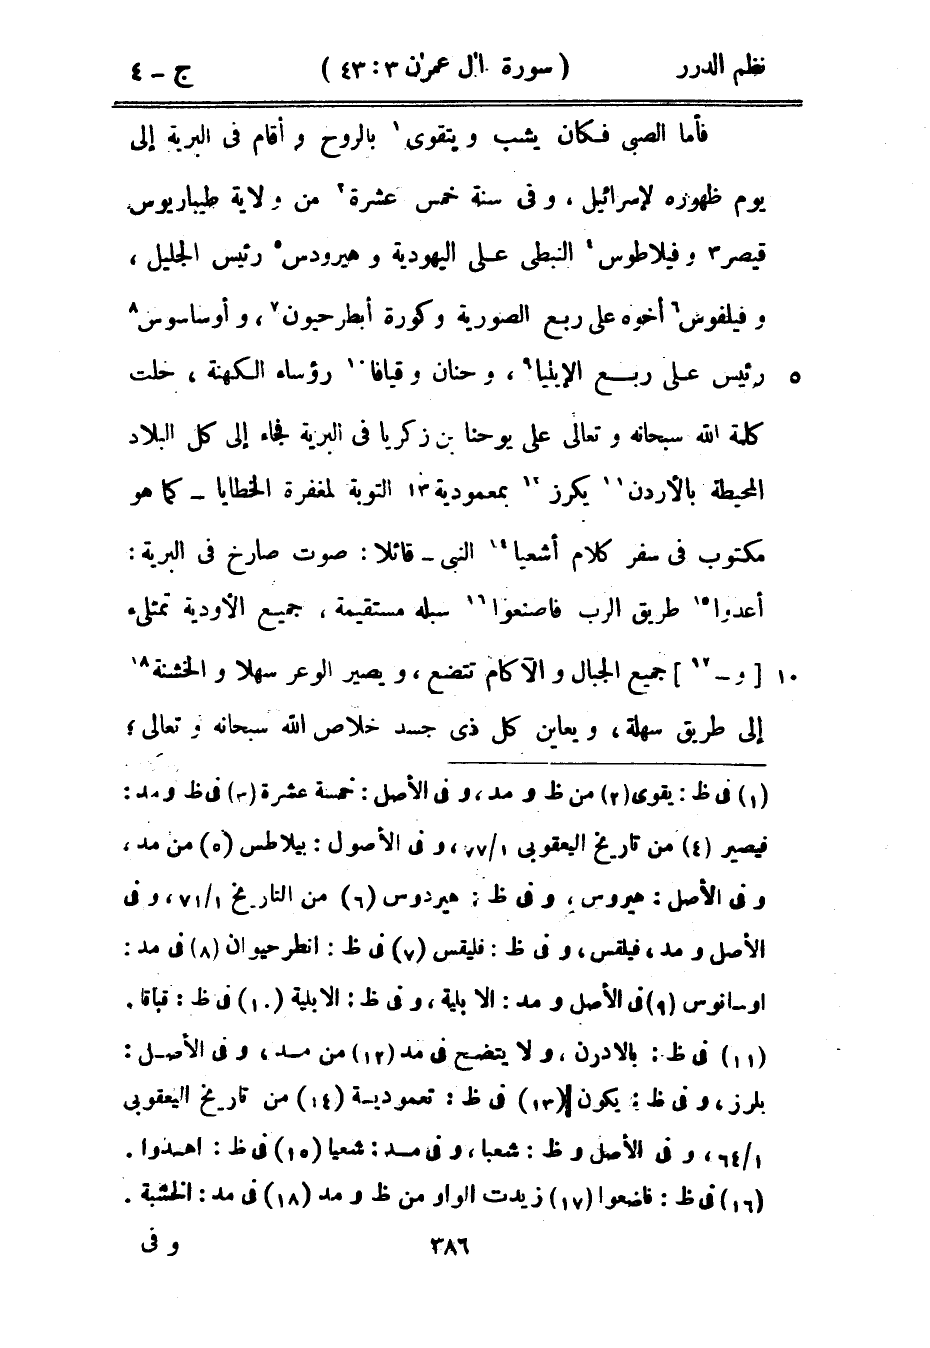 نظم الدرر ( سورة اٰل عمرٰن ٣ : ٤٣ ) ج – ٤
فأما الصبي فكان يشب و يتقوى١ بالروح و أقام فى البرية إلى
يوم ظهوره لإسرائيل ، و فى سنة خمس عشرة٢ من ولاية طيباريوس
قيصر٣ و فيلاطوس٤ النبطى على اليهودية و هيرودس٥ رئيس الجليل ،
و فيلفوس٦ أخوه على ربع الصورية و كورة أبطرحيون٧ ، و أوساسوس٨
٥ رئيس على ربع الإيليا٩ ، و حنان و قيافا١٠ رؤساء الكهنة ، حلت
كلمة الله سبحانه و تعالى على يوحنا بن زكريا فى البرية فجاء إلى كل البلاد
المحيطة بالأردن١١ يكرز١٢ بمعمودية١٣ التوبة لمغفرة الخطايا – كما هو
مكتوب فى سفر كلام أشعيا١٤ النبي – قائلا : صوت صارخ فى البرية :
أعدوا١٥ طريق الرب فاصنعوا١٦ سبله مستقيمة ، جميع الأودية تمتلىء
١٠ [ و –١٧ ] جميع الجبال و الآكام تتضع ، و يصير الوعر سهلا و الخشنة١٨
إلى طريق سهلة ، و يعاين كل ذى جسد خلاص الله سبحانه و تعالى ؛
(١) فى ظ : يقوى (٢) من ظ و مد ، و فى الأصل : خمسة عشرة (٣) فى ظ و مد :
فيصير (٤) من تاريخ اليعقوبى ١/ ٧٧ ، و فى الأصول : بيلاطس (٥) من مد ،
و فى الأصل : هيروس ، و فى ظ : هيردوس (٦) من التاريخ ١/ ٧١ ، و فى
الأصل و مد ، فيلقس ، و فى ظ : فليقس (٧) فى ظ : انطرحيوان (٨) فى مد :
اوسانوس (٩) فى الأصل و مد : الابلية ، و فى ظ : الايلية (١٠) فى ظ : قباقا .
(١١) فى ظ : بالادرن ، و لا يتضح فى مد (١٢) من مد ، و فى الأصل :
بلرز ، و فى ظ : يكون (١٣) فى ظ : تعمودية (١٤) من تاريخ اليعقوبى
١/ ٦٤ ، و فى الأصل و ظ : شعبا ، و فى مد : شعيا (١٥) فى ظ : اهدوا .
(١٦) فى ظ : فاضعوا (١٧) زيدت الواو من ظ و مد (١٨) فى مد : الخشبة .
٣٨٦ و فى